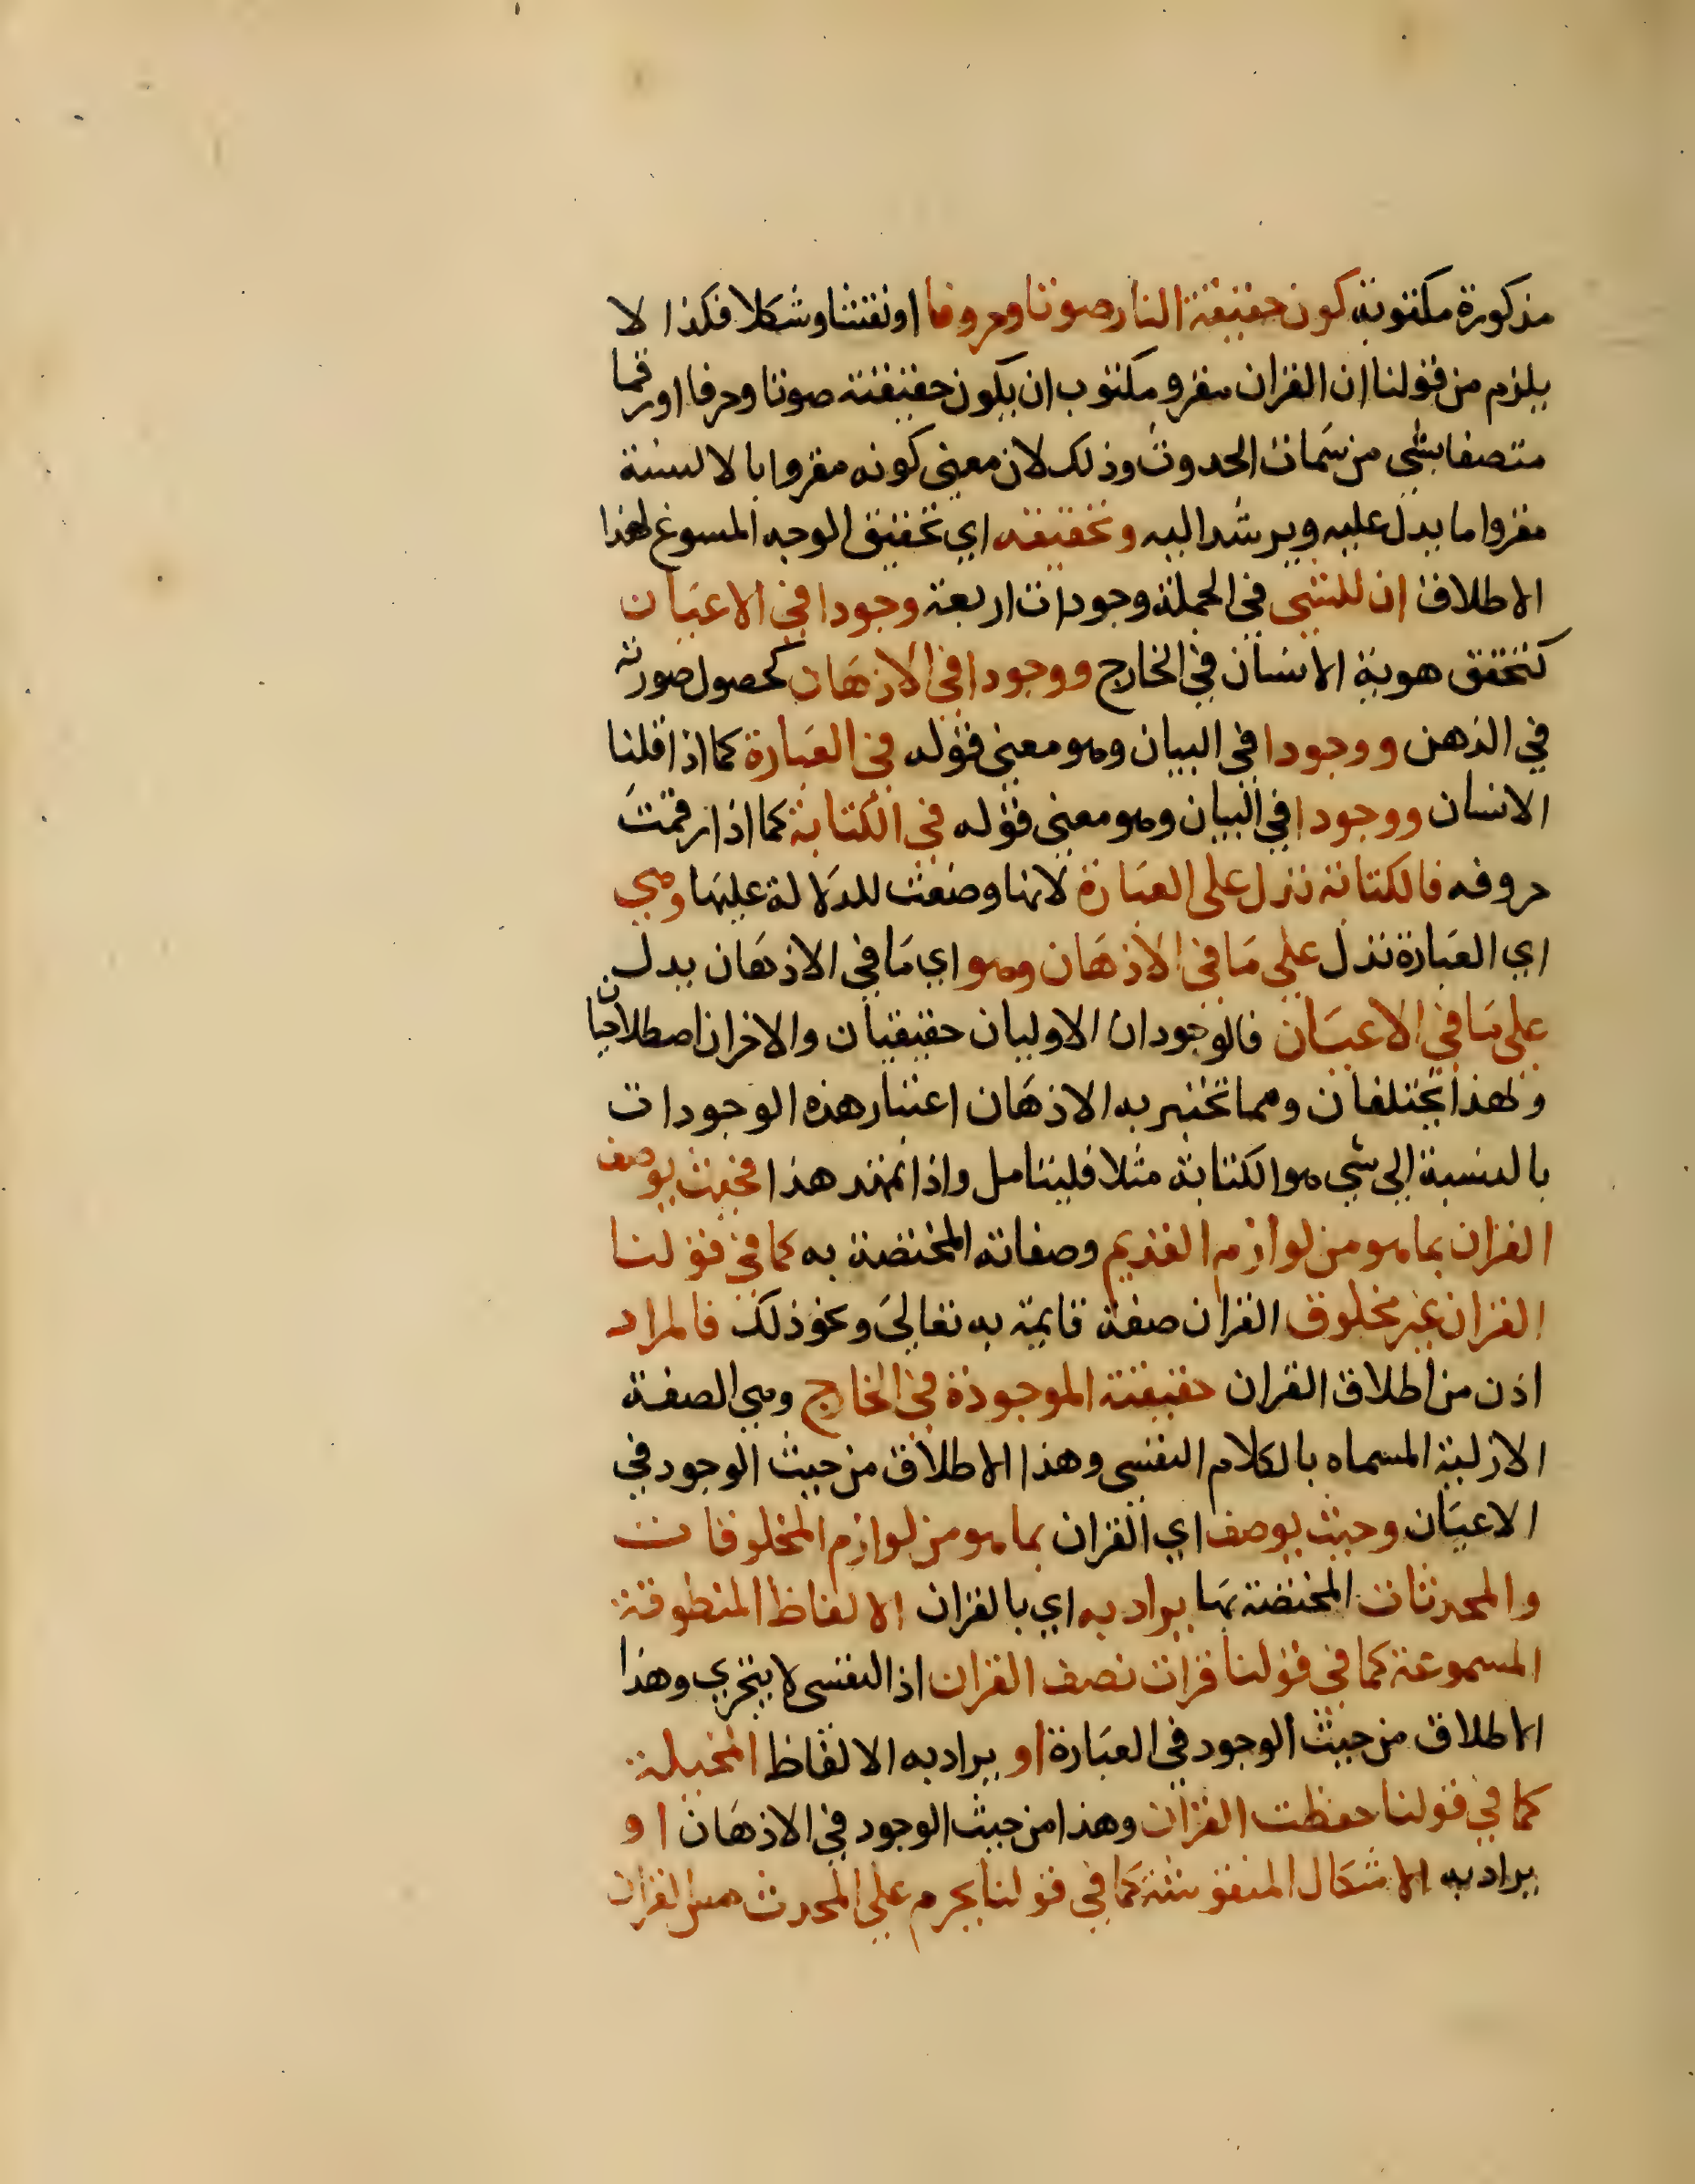 مذكورة مكتوبة كون حقيقة النار صوتا وحروفا او نقشا وشكلا فكذا لا
يلزم من قولنا ان القران مقرو مكتوب ان يكون حقيقته صوتا وحرفا او رقما
متصفا بشي من سمات الحدوث وذلك لان معنى كونه مقروا بالالسنة
مقروا ما يدل عليه ويرشد اليه وتحقيقه اي تحقيق الوجه المسوغ لهذا
الاطلاق ان للشي في الجملة وجودات اربعة وجودا في الاعيان
كتحقق هوية الانسان في الخارج ووجودا في الاذهان كحصول صورته
في الذهن ووجودا في البيان وهو معنى قوله في العبارة كما اذا قلنا
الانسان ووجودا في البيان وهو معنى قوله في الكتابة كما اذا رقمت
حروفه فالكتابة تدل على العبارة لانها وضعت للدلالة عليها وهي
اي العبارة تدل على ما في الاذهان وهو اي ما في الاذهان يدل
على ما في الاعيان فالوجودان الاوليان حقيقيان والاخران اصطلاحيان
ولهذا يختلفان ومما تختبر به الاذهان اعتبار هذه الوجودات
بالنسبة الى شي هو الكتابة مثلا فليتامل واذا تمهد هذا فحيث يوصف
القران بما هو من لوازم القديم وصفاته المختصة به كما في قولنا
القران غير مخلوق القران صفة قايمة به تعالى ونحو ذلك فالمراد
اذن من اطلاق القران حقيقته الموجودة في الخارج وهي الصفة
الازلية المسماه بالكلام النفسي وهذا الاطلاق من حيث الوجود في
الاعيان وحيث يوصف اي القران بما هو من لوازم المخلوقات
والمحدثات المختصة بها يراد به اي بالقران الالفاظ المنطوقة
المسموعة كما في قولنا قرات نصف القران اذ النفسي لا يتجزي وهذا
الاطلاق من حيث الوجود في العبارة او يراد به الالفاظ المخيلة
كما في قولنا حفظت القران وهذا من حيث الوجود في الاذهان او
يراد به الاشكال المنقوشة كما في قولنا يحرم على المحدث مس القران